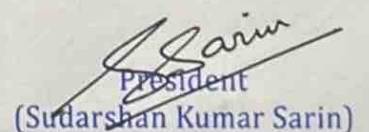 SSarin
President
(Sudarshan Kumar Sarin)